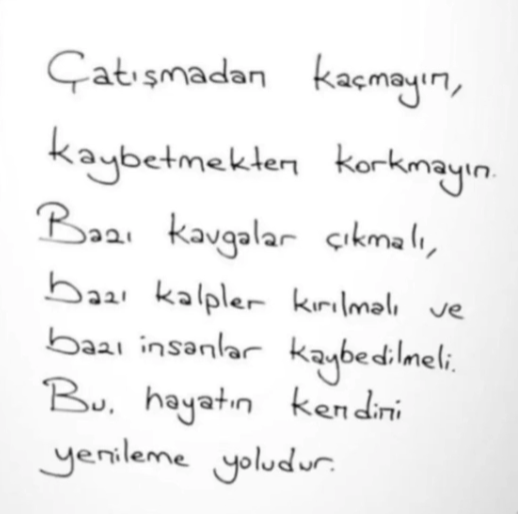 Çatışmadan kaçmayın,
kaybetmekten korkmayın.
Bazı kavgalar çıkmalı,
bazı kalpler kırılmalı ve
bazı insanlar kaybedilmeli.
Bu, hayatın kendini
yenileme yoludur.